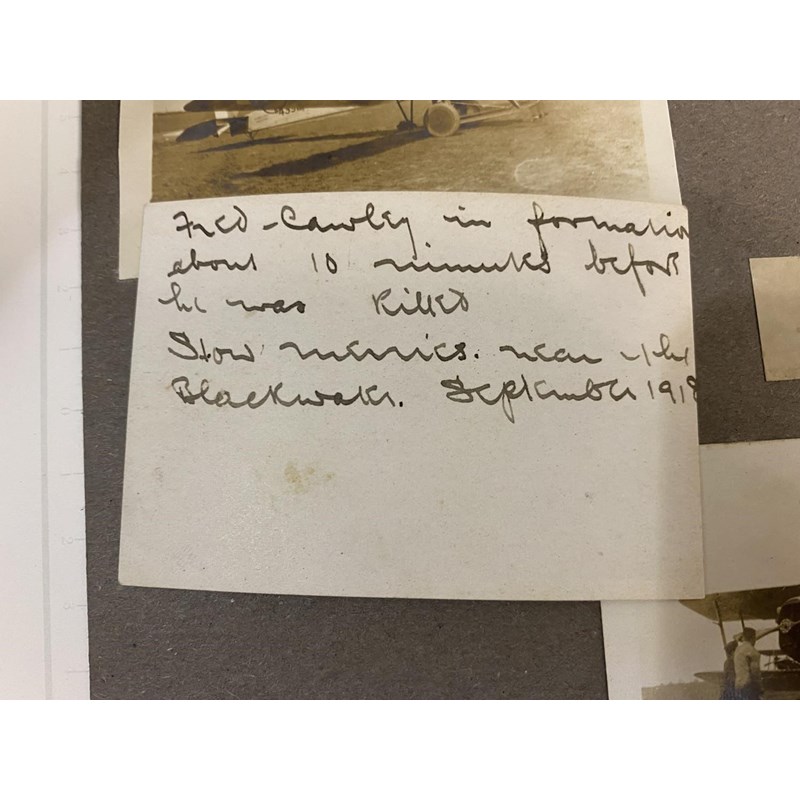 Fred Cawley in formation
about 10 minutes before
he was killed
Stow maries. near the
Blackwater. September 1918